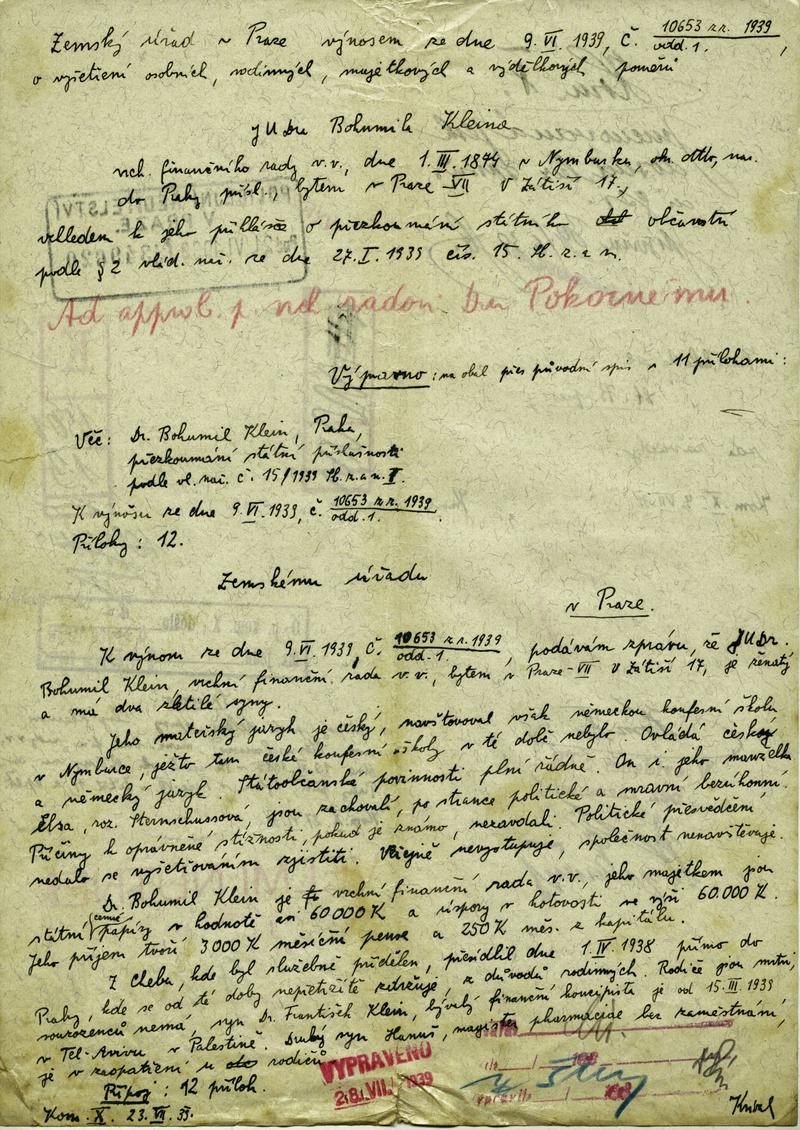 Zemský úřad v Praze výnosem ze dne 9.VI.1939, č. 10653 z r. 1939 odd. 1.,
o vyšetření osobních, rodinných, majetkových a výdělkových poměrů
JUDra Bohumila Kleina
vrch. finančního rady v.v., dne 1.III.1874 v Nymburku, okr. dtto, nar.
do Prahy přísl., bytem v Praze VII V Zátiší 17,
vzhledem k jeho přihlášce o přezkoumání státního občanství
podle § 2 vlád. nař. ze dne 27.I.1939 čís. 15. Sb. z. a n.
Ad approb. p. radovi Dru Pokornému.
Výpravno: na obál přes původní spis s 11 přílohami:
Věc: Dr. Bohumil Klein, Praha,
přezkoumání státní příslušnosti
podle vl. nař. č. 15/1939 Sb. z. a n. I.
K výnosu ze dne 9.VI.1939, č. 10653 z r. 1939 odd. 1.
Přílohy: 12.
Zemskému úřadu
v Praze.
K výnosu ze dne 9.VI.1939, č. 10653 z r. 1939 odd. 1., podávám zprávu, že JUDr.
Bohumil Klein, vrchní finanční rada v.v., bytem v Praze-VII V Zátiší 17, je ženatý
a má dva zletilé syny.
Jeho mateřský jazyk je český, navštěvoval však německou konfesní školu
v Nymburce, ježto tam české konfesní školy v té době nebylo. Ovládá český
a německý jazyk. Státoobčanské povinnosti plní řádně. On i jeho manželka
Elsa, roz. Sternschussová, jsou zachovalí, po stránce politické a mravní bezúhonní.
Příčiny k oprávněné stížnosti, pokud je známo, nezavdali. Politické přesvědčení
nedalo se vyšetřováním zjistiti. Veřejně nevystupuje, společnost nenavštěvuje.
Dr. Bohumil Klein je vrchní finanční rada v.v., jeho majetkem jsou
státní cenné papíry v hodnotě 60000 K a úspory v hotovosti ve výši 60.000 K.
Jeho příjem tvoří 3000 K měsíční pense a 250 K měs. z kapitálu.
Z Chebu, kde byl služebně přidělen, přesídlil dne 1.IV.1938 přímo do
Prahy, kde se od té doby nepřetržitě zdržuje, z důvodů rodinných. Rodiče jsou mrtvi,
sourozenců nemá, syn Dr. František Klein, bývalý finanční koncipista je od 15.III.1939
v Tel-Avivu v Palestině. Druhý syn Hanuš, magister pharmaciae bez zaměstnání,
je v zaopatření u rodičů.
Připoj: 12 příloh.
VYPRAVENO
28.VII.1939
Kom. X. 23.VII.39.